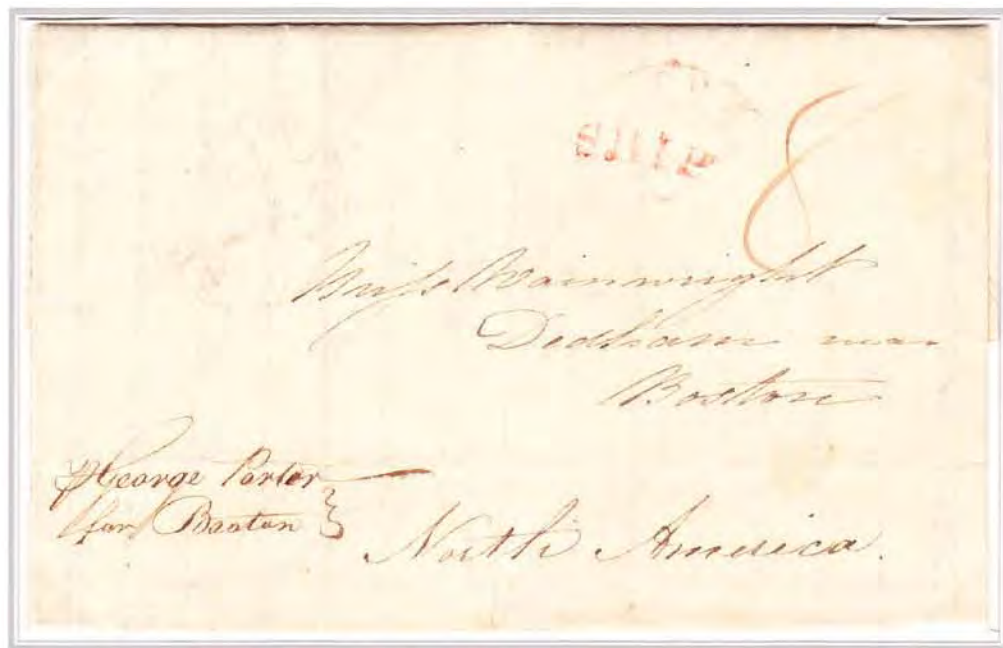 SHIP
8
Miss Wainwright
Dedham near
Boston
p George Porter
for Boston
North America.